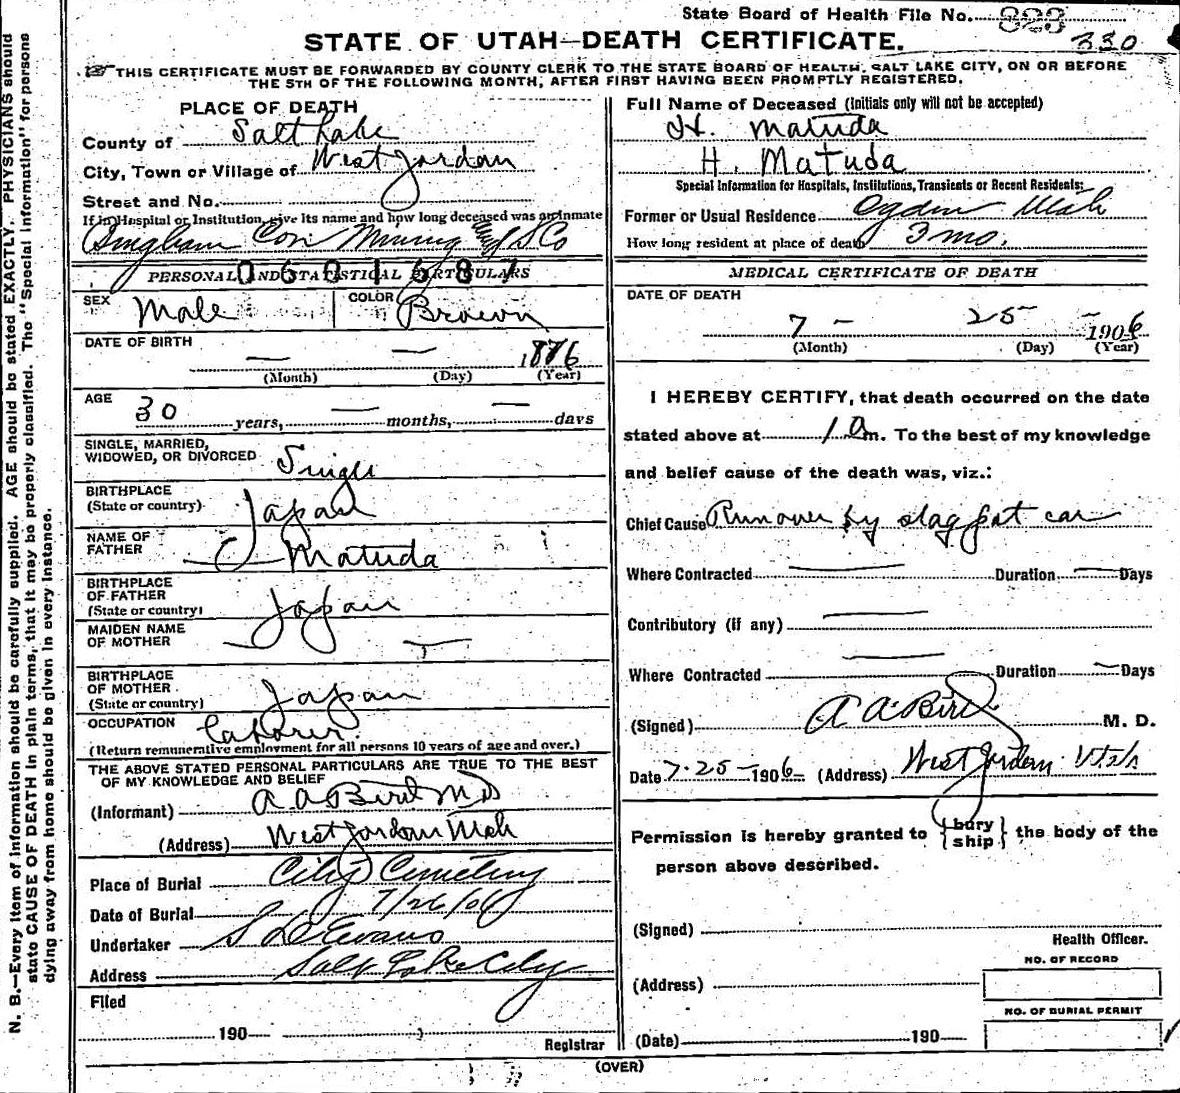 State Board of Health File No. 823
330
STATE OF UTAH—DEATH CERTIFICATE.
☞ THIS CERTIFICATE MUST BE FORWARDED BY COUNTY CLERK TO THE STATE BOARD OF HEALTH, SALT LAKE CITY, ON OR BEFORE
THE 5TH OF THE FOLLOWING MONTH, AFTER FIRST HAVING BEEN PROMPTLY REGISTERED.
N. B.—Every item of information should be carefully supplied. AGE should be stated EXACTLY. PHYSICIANS should
state CAUSE OF DEATH in plain terms, that it may be properly classified. The "Special Information" for persons
dying away from home should be given in every instance.
PLACE OF DEATH
County of Salt Lake
City, Town or Village of West Jordan
Street and No.
If in Hospital or Institution, give its name and how long deceased was an inmate
Bingham Con Mining & S Co
PERSONAL AND STATISTICAL PARTICULARS
0601687
SEX Male COLOR Brown
DATE OF BIRTH — — 1876
(Month) (Day) (Year)
AGE
30 years, — months, — days
SINGLE, MARRIED,
WIDOWED, OR DIVORCED Single
BIRTHPLACE
(State or country) Japan
NAME OF
FATHER — Matuda
BIRTHPLACE
OF FATHER
(State or country) Japan
MAIDEN NAME
OF MOTHER — —
BIRTHPLACE
OF MOTHER
(State or country) Japan
OCCUPATION Laborer.
(Return remunerative employment for all persons 10 years of age and over.)
THE ABOVE STATED PERSONAL PARTICULARS ARE TRUE TO THE BEST
OF MY KNOWLEDGE AND BELIEF
(Informant) A A Bird M D
(Address) West Jordan Utah
Place of Burial City Cemetery
Date of Burial 7/26/06
Undertaker S D Evans
Address Salt Lake City
Filed
190— Registrar
Full Name of Deceased (Initials only will not be accepted)
H. Matuda
H. Matuda
Special Information for Hospitals, Institutions, Transients or Recent Residents:
Former or Usual Residence Ogden Utah
How long resident at place of death 3 mo.
MEDICAL CERTIFICATE OF DEATH
DATE OF DEATH
7 - 25 - 1906
(Month) (Day) (Year)
I HEREBY CERTIFY, that death occurred on the date
stated above at 1 a m. To the best of my knowledge
and belief cause of the death was, viz.:
Chief Cause Run over by slag pot car
Where Contracted — Duration — Days
Contributory (if any) —
Where Contracted — Duration — Days
(Signed) A A Bird M. D.
Date 7-25-1906- (Address) West Jordan Utah
Permission is hereby granted to {bury
ship} the body of the
person above described.
(Signed)
Health Officer.
NO. OF RECORD
(Address)
NO. OF BURIAL PERMIT
(Date) 190—
(OVER)